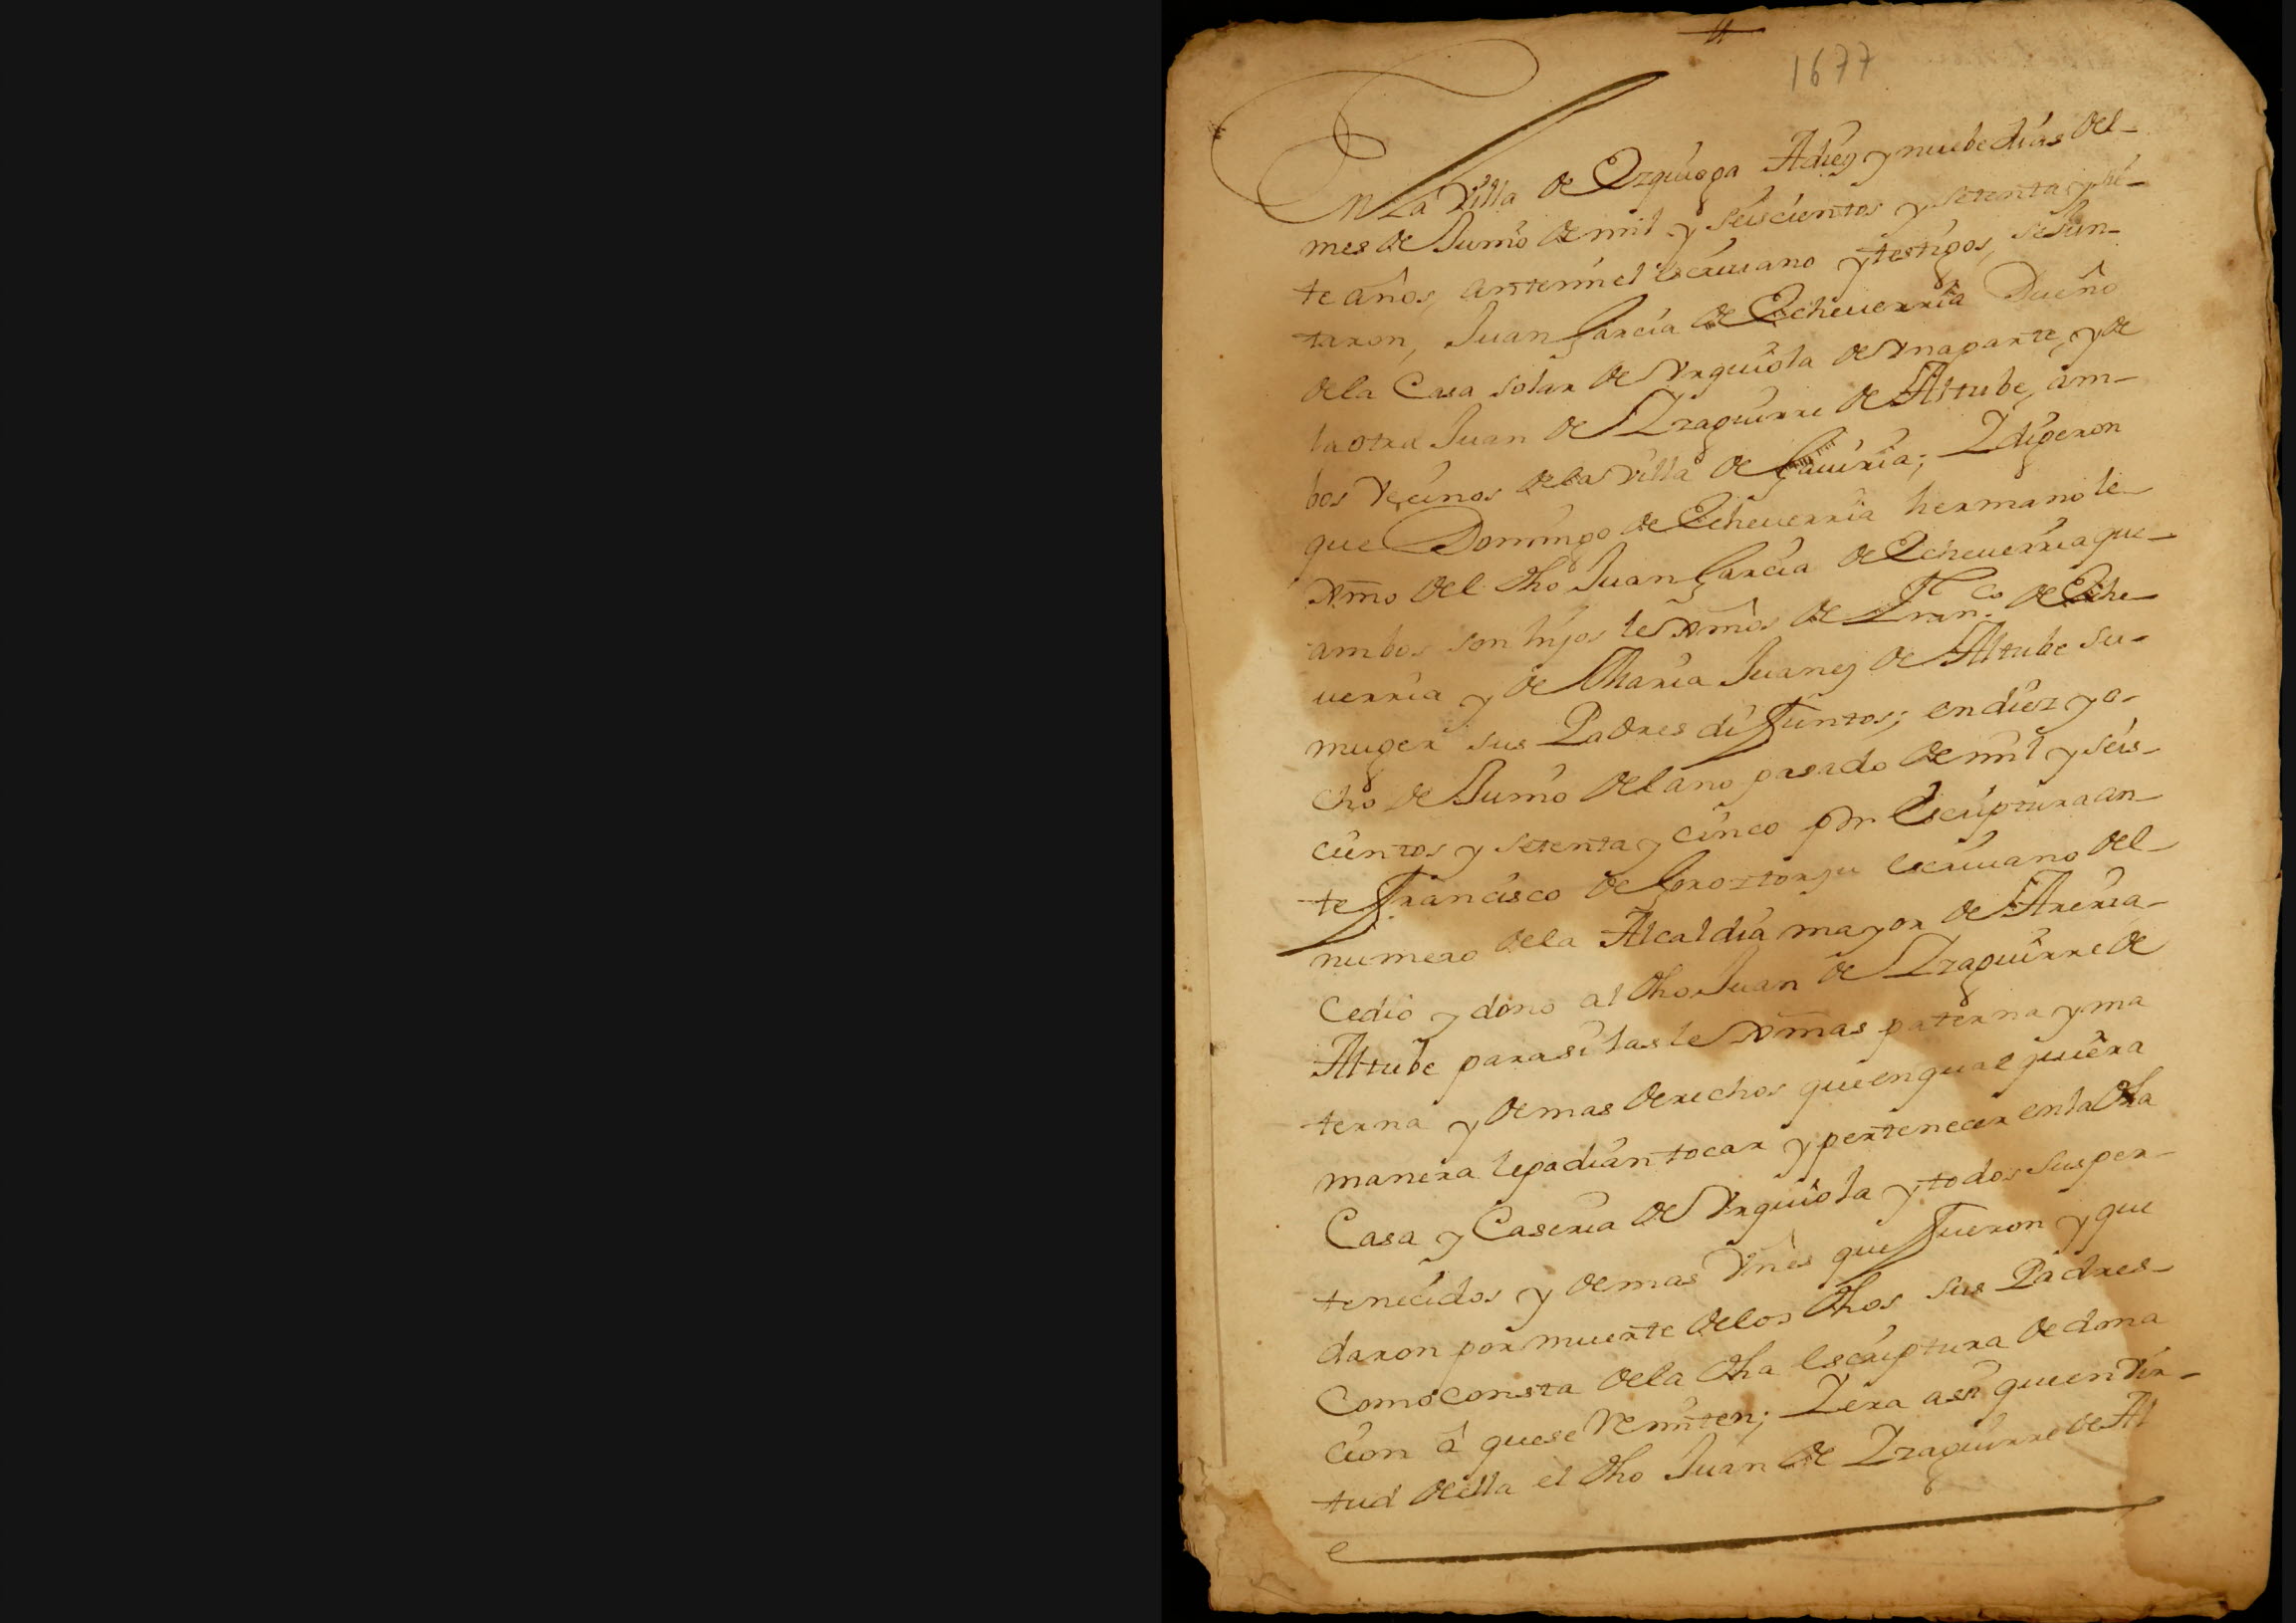 1677
En La Villa de Ezquioga A diez y nuebe dias del
mes de Junio de mil y seiscientos y setenta y sie-
te años, ante mi el escriuano y testigos, se Jun-
taron, Juan Garcia de Echeuerria Dueño
de la Casa solar de Vrquiola de Vna parte, y de
la otra Juan de Yzaguirre de Altube, am-
bos Veçinos de la Villa de Gauiria; Y digeron
que Domingo de Echeuerria hermano le-
xmo del dho Juan Garcia de Echeuerria que
ambos son hijos lexmos de Franco. de Eche
uerria y de Maria Juanez de Altube su
muger sus Padres difuntos; en diez y o-
cho de Junio del ano pasado de mil y seis-
cientos y setenta y cinco por Escriptura an-
te Francisco de Goroztorzu escriuano del
numero de la Alcaldia mayor de Areria
Cedio y dono al dho Juan de Yzaguirre de
Altube para si las lexmas paterna y ma
terna y demas derechos que en qual quiera
manera le podian tocar y pertenecer en la dha
Casa y Caseria de Vrquiola y todos sus per-
tenecidos y demas Vnes que fueron y que
daron por muerte de los dhos sus Padres
Como consta de la dha escriptura de dona
cion â que se Remiten; Y era asi que en Vir-
tud della el dho Juan de Yzaguirre de Al